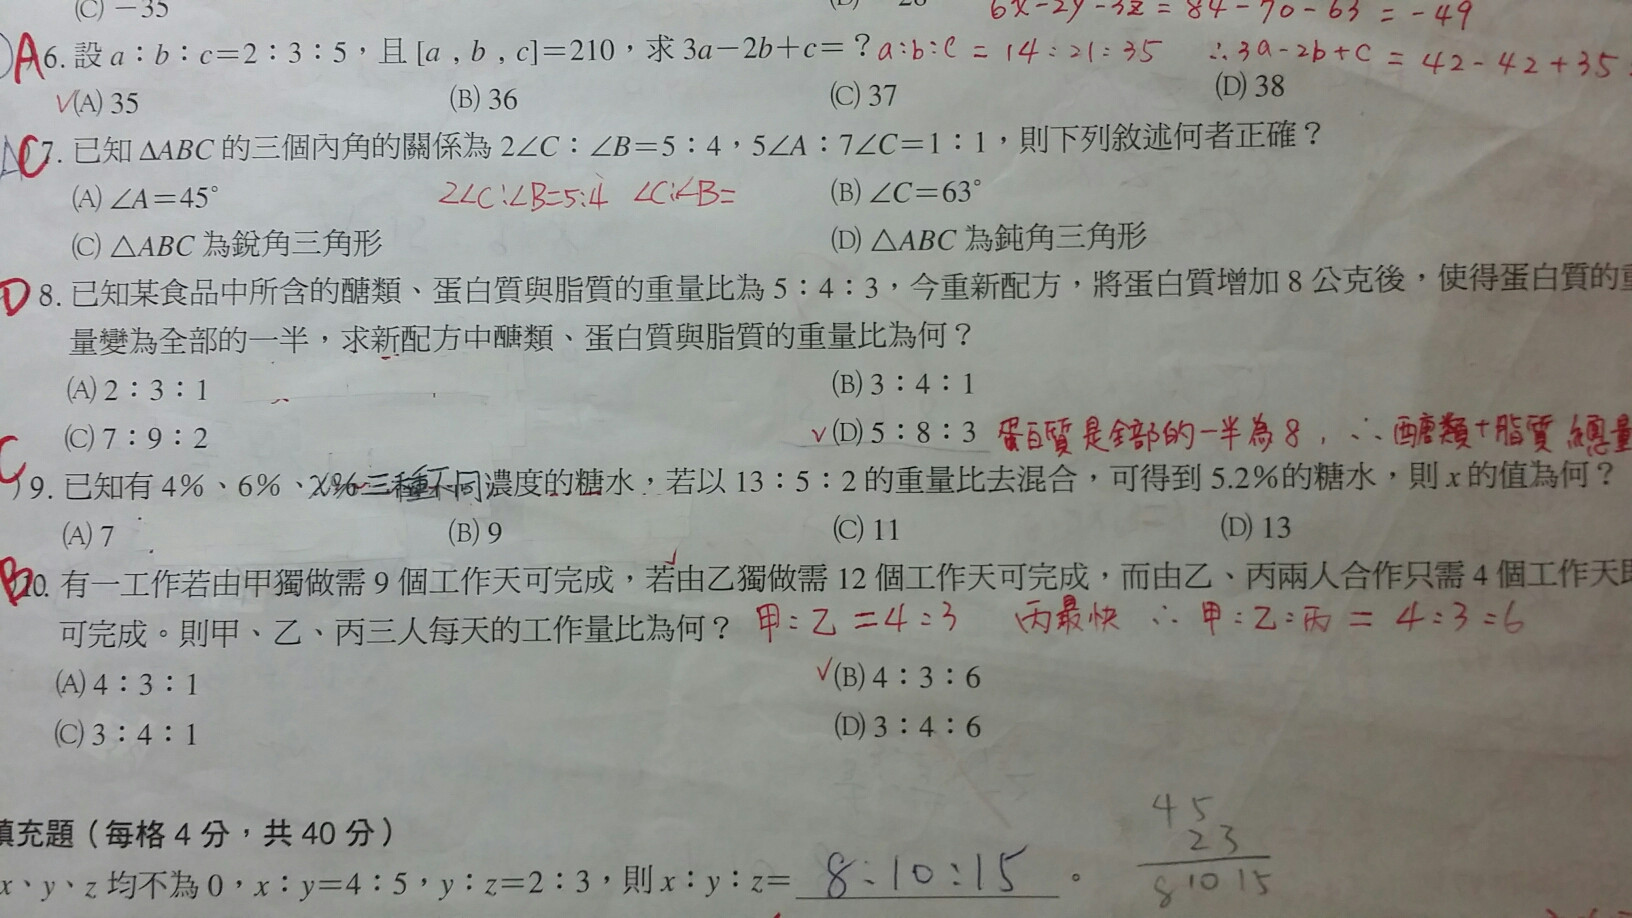 (C) −35
6x-2y-3z = 84-70-63 = -49
A 6. 設 a：b：c=2：3：5，且 [a , b , c]=210，求 3a−2b+c=？ a:b:c = 14:21:35 ∴3a-2b+c = 42-42+35
✓(A) 35 (B) 36 (C) 37 (D) 38
C 7. 已知 △ABC 的三個內角的關係為 2∠C：∠B=5：4，5∠A：7∠C=1：1，則下列敘述何者正確？
(A) ∠A=45° 2∠C:∠B=5:4 ∠C:∠B= (B) ∠C=63°
(C) △ABC 為銳角三角形 (D) △ABC 為鈍角三角形
D 8. 已知某食品中所含的醣類、蛋白質與脂質的重量比為 5：4：3，今重新配方，將蛋白質增加 8 公克後，使得蛋白質的重
量變為全部的一半，求新配方中醣類、蛋白質與脂質的重量比為何？
(A) 2：3：1 (B) 3：4：1
(C) 7：9：2 ✓(D) 5：8：3 蛋白質是全部的一半為8，∴醣類+脂質 總量
C 9. 已知有 4%、6%、x%三種不同濃度的糖水，若以 13：5：2 的重量比去混合，可得到 5.2%的糖水，則 x 的值為何？
(A) 7 (B) 9 (C) 11 (D) 13
B 10. 有一工作若由甲獨做需 9 個工作天可完成，若由乙獨做需 12 個工作天可完成，而由乙、丙兩人合作只需 4 個工作天即
可完成。則甲、乙、丙三人每天的工作量比為何？ 甲:乙 =4:3 丙最快 ∴ 甲:乙:丙 = 4:3:6
(A) 4：3：1 ✓(B) 4：3：6
(C) 3：4：1 (D) 3：4：6
填充題（每格 4 分，共 40 分）
x、y、z 均不為 0，x：y=4：5，y：z=2：3，則 x：y：z= 8:10:15 。
4 5
2 3
8 10 15